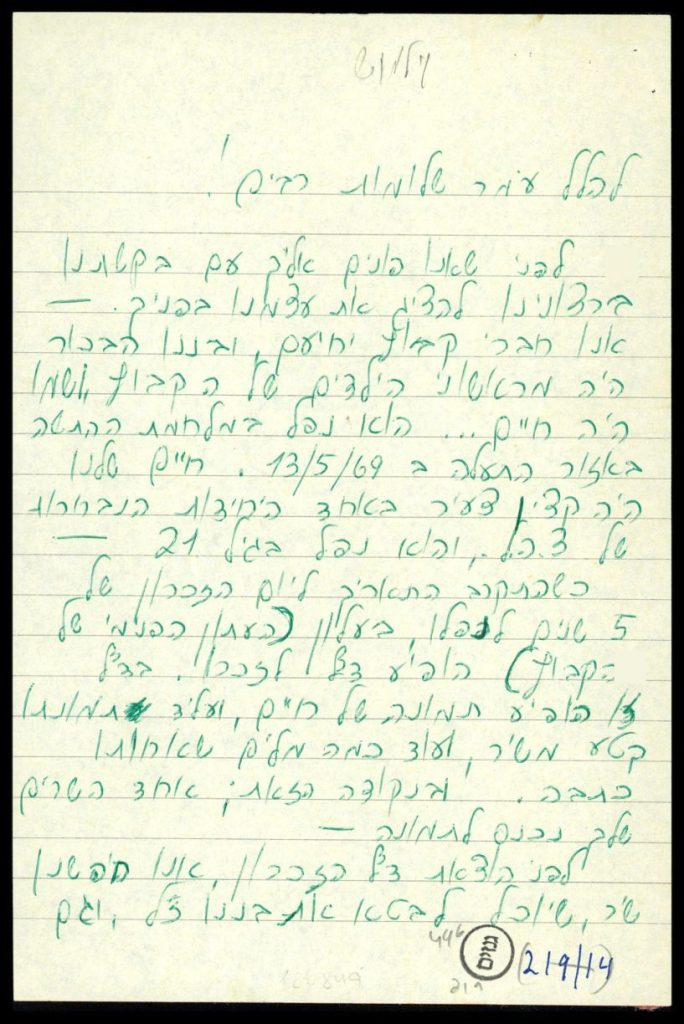 להלל עומר שלומות רבים!
לפני שאנו פונים אליך עם בקשתנו
ברצונינו להציג את עצמנו בפניך. —
אנו חברי קבוץ יחיעם, ובננו הבכור
היה מראשוני הילדים של הקבוץ ושמו
היה חיים... הוא נפל במלחמת ההתשה
באזור התעלה ב 13/5/69. חיים שלנו
היה קצין צעיר באחד היחידות הנבחרות
של צ.ה.ל., והוא נפל בגיל 21 —
כשהתקרב התאריך ליום הזכרון של
5 שנים לנפלו, בעלון (העתון הפנימי של
הקבוץ) הופיע דף לזכרו. בדף
זו הופיע תמונה של חיים, ועל יד תמונתו
קטע משיר, ועוד כמה מלים שאחותו
כתבה. ובנקודה הזאת; אחד השרים
שלך נכנס לתמונה —
לפני הוצאת דף הזכרון, אנו חפשנו
שיר, שיוכל לבטא את בננו ז"ל, וגם
446
גנזים
(219/14)